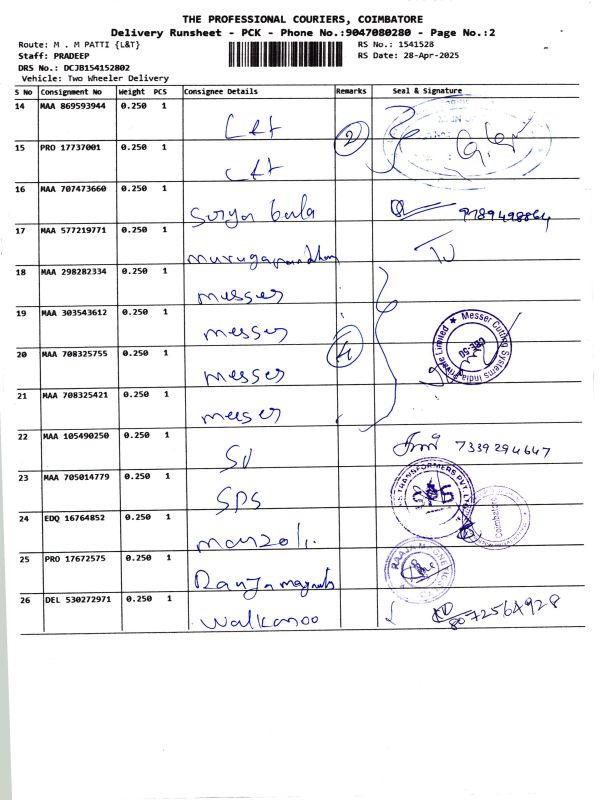 THE PROFESSIONAL COURIERS, COIMBATORE
Delivery Runsheet - PCK - Phone No.:9047080280 - Page No.:2
Route: M . M PATTI {L&T} RS No.: 1541528
Staff: PRADEEP RS Date: 28-Apr-2025
DRS No.: DCJB154152802
Vehicle: Two Wheeler Delivery
S No Consignment No Weight PCS Consignee Details Remarks Seal & Signature
14 MAA 869593944 0.250 1 L&T 2
15 PRO 17737001 0.250 1 L&T
16 MAA 707473660 0.250 1 Surya bala 9789498864
17 MAA 577219771 0.250 1
18 MAA 298282334 0.250 1 messer
19 MAA 303543612 0.250 1 messer Messer Cutting Systems India Private Limited CBE-50
20 MAA 708325755 0.250 1 messer 4
21 MAA 708325421 0.250 1 messer
22 MAA 105490250 0.250 1 7339294647
23 MAA 705014779 0.250 1 SPS TRANSFORMERS PVT. LTD
24 EDQ 16764852 0.250 1 Coimbatore
25 PRO 17672575 0.250 1 Raaja magnets RAAJA MAGNETICS
26 DEL 530272971 0.250 1 walkaroo 8072564928